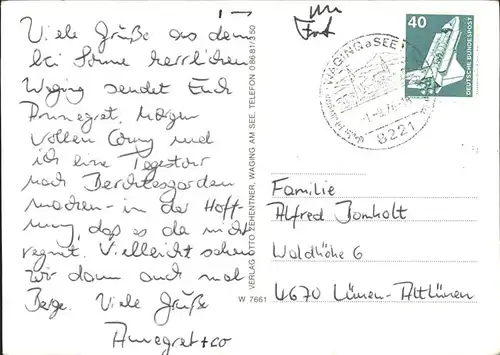 Viele Grüße aus dem
bei Sonne herrlichen
Waging sendet Euch
Annegret. Morgen
wollen Conny und
ich eine Tagestour
nach Berchtesgaden
machen - in der Hoff-
nung, daß es da nicht
regnet. Vielleicht sehen
wir dann auch mal
Berge. Viele Grüße
Annegret + co
VERLAG OTTO ZEHENTNER, WAGING AM SEE, TELEFON 0 86 81/3 50
W 7661
40
DEUTSCHE BUNDESPOST
WAGING a SEE
8221
Familie
Alfred Bomholt
Waldhöhe 6
4670 Lünen-Altlünen